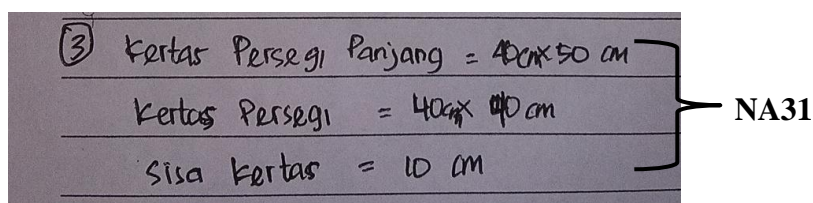 ③ Kertas Persegi Panjang = 40cm x 50 cm
Kertas Persegi = 40cm x 40 cm
Sisa Kertas = 10 cm
NA31